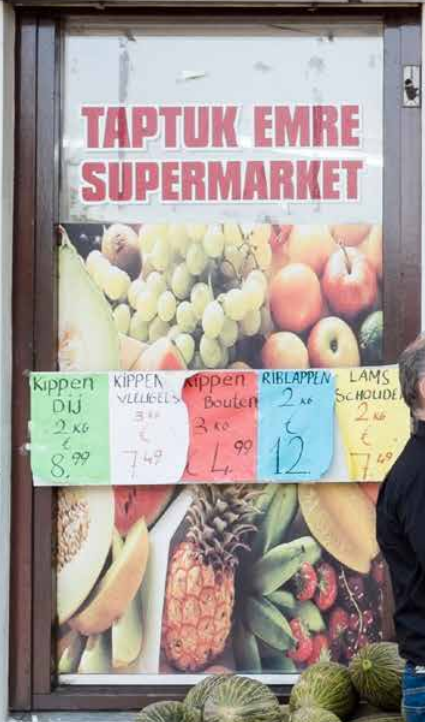 TAPTUK EMRE
SUPERMARKET
Kippen
DIJ
2 KG
€
8,99
KIPPEN
VLEUGELS
3 KG
€
7,49
Kippen
Bouten
3 KG
€ 4,99
RIBLAPPEN
2 KG
€
12
LAMS
SCHOUDE
2 KG
€
7,49